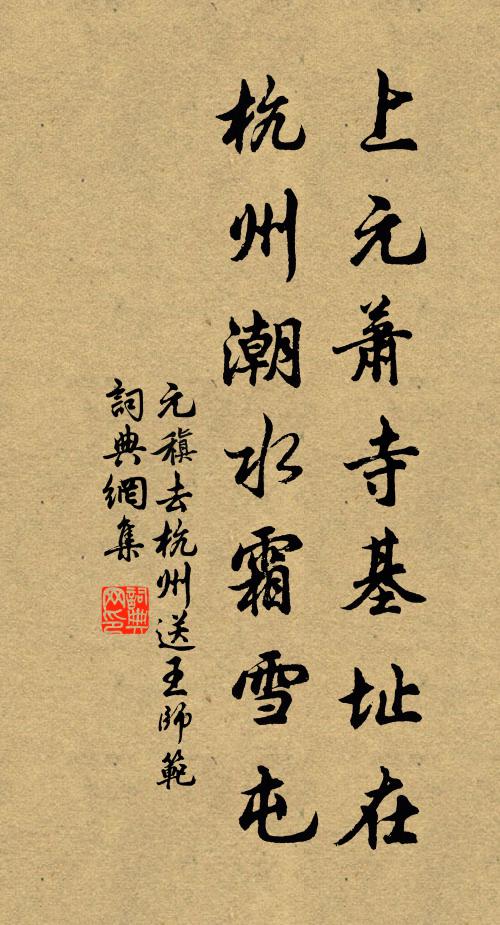 上元蕭寺基址在
杭州潮水霜雪屯
元稹去杭州送王師範
詞典網集
詞典
网印